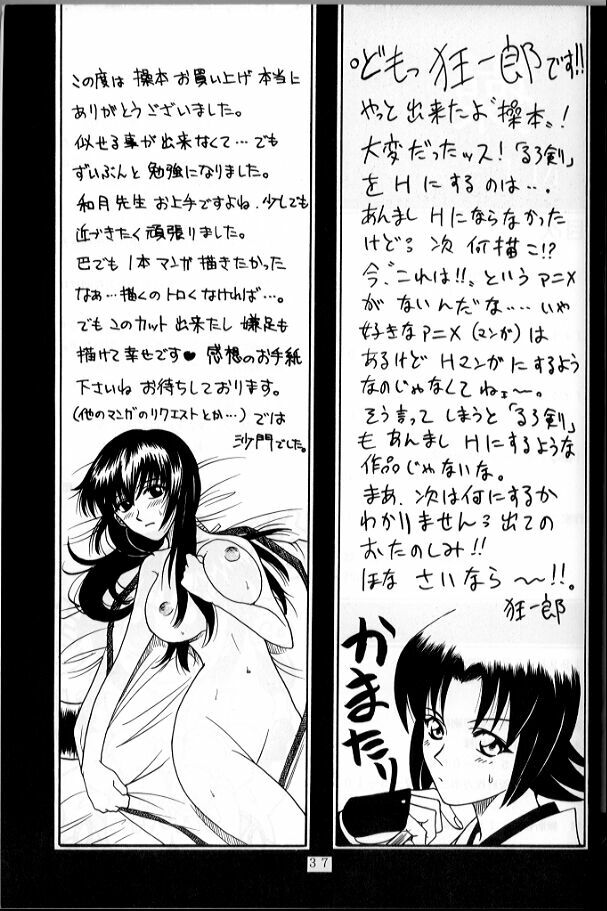 どもっ 狂一郎です!!
やっと出来たよ"操本"!
大変だったッス!「るろ剣」
をHにするのは…。
あんましHにならなかった
けどる 次何描こ!?
今、"これは!!"というアニメ
がないんだな……いや
好きなアニメ(マンガ)は
あるけどHマンガにするよう
なのじゃなくてねェ〜。
そう言ってしまうと「るろ剣」
もあんましHにするような
作品じゃないな。
まぁ、次は何にするか
わかりませんる 出ての
おたのしみ!!
ほな さいなら 〜!!。
狂一郎
かまたり
この度は 操本 お買い上げ 本当に
ありがとうございました。
似せる事が出来なくて…でも
ずいぶんと 勉強になりました。
和月先生 お上手ですよね、少しでも
近づきたく 頑張りました。
巴でも 1本マンガ描きたかった
なぁ…描くのトロくなければ…。
でもこのカット出来たし 鎌足も
描けて幸せです♥ 感想のお手紙
下さいね お待ちしております。
(他のマンガのリクエストとか…)では
沙門でした。
37